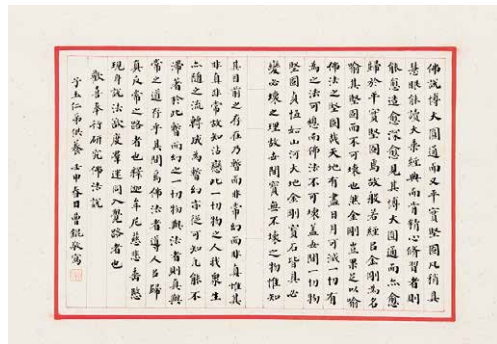 佛说博大圆通而又平實堅固凡稍具
慧眼能誦大乘經典而肯精心研習者則
能愈造愈深愈見其博大圓通而亦愈
歸於平實堅固焉故般若經名金剛為名
喻其堅固而不可壞也然金剛豈果足以喻
佛法之堅固哉天地有盡日月可滅一切有
為之法可想而佛法不可壞蓋世間一切物
堅固貞恆如山河大地金剛寶石皆具必
變必壞之理故世間實無不壞之物惟知
其目前之存在乃暫而非常幻而非真惟其
非真非常故知沾戀此一切物之人我眾生
亦隨之流轉成為暫幻害從可知凡能不
滯著於此暫而幻之一切物觀法者則真與
常之道存乎其間焉佛法者導人名歸
真反常之路者也釋迦牟尼慈悲喬愍
現身說法欲度羣迷同入覺路者也
歡喜奉行研究佛法說
子玉仁弟供養 壬申春日曹錕敬寫